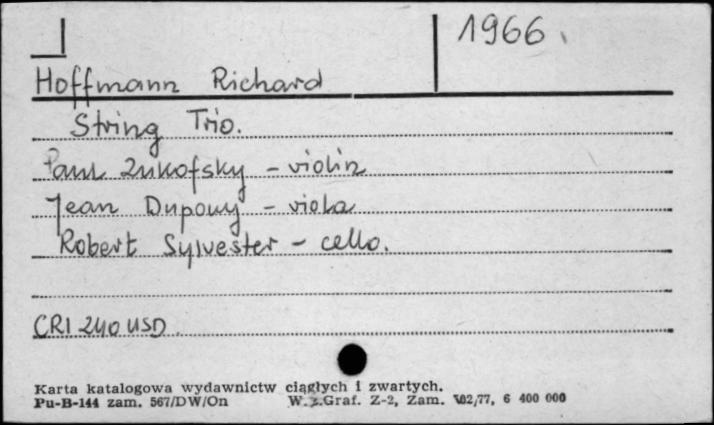 1966.
Hoffmann Richard
String Trio.
Paul Zukofsky - violin
Jean Dupouy - viola
Robert Sylvester - cello.
CRI 240 USD
Karta katalogowa wydawnictw ciągłych i zwartych.
Pu-B-144 zam. 567/DW/On W.z.Graf. Z-2, Zam. 102/77, 6 400 000